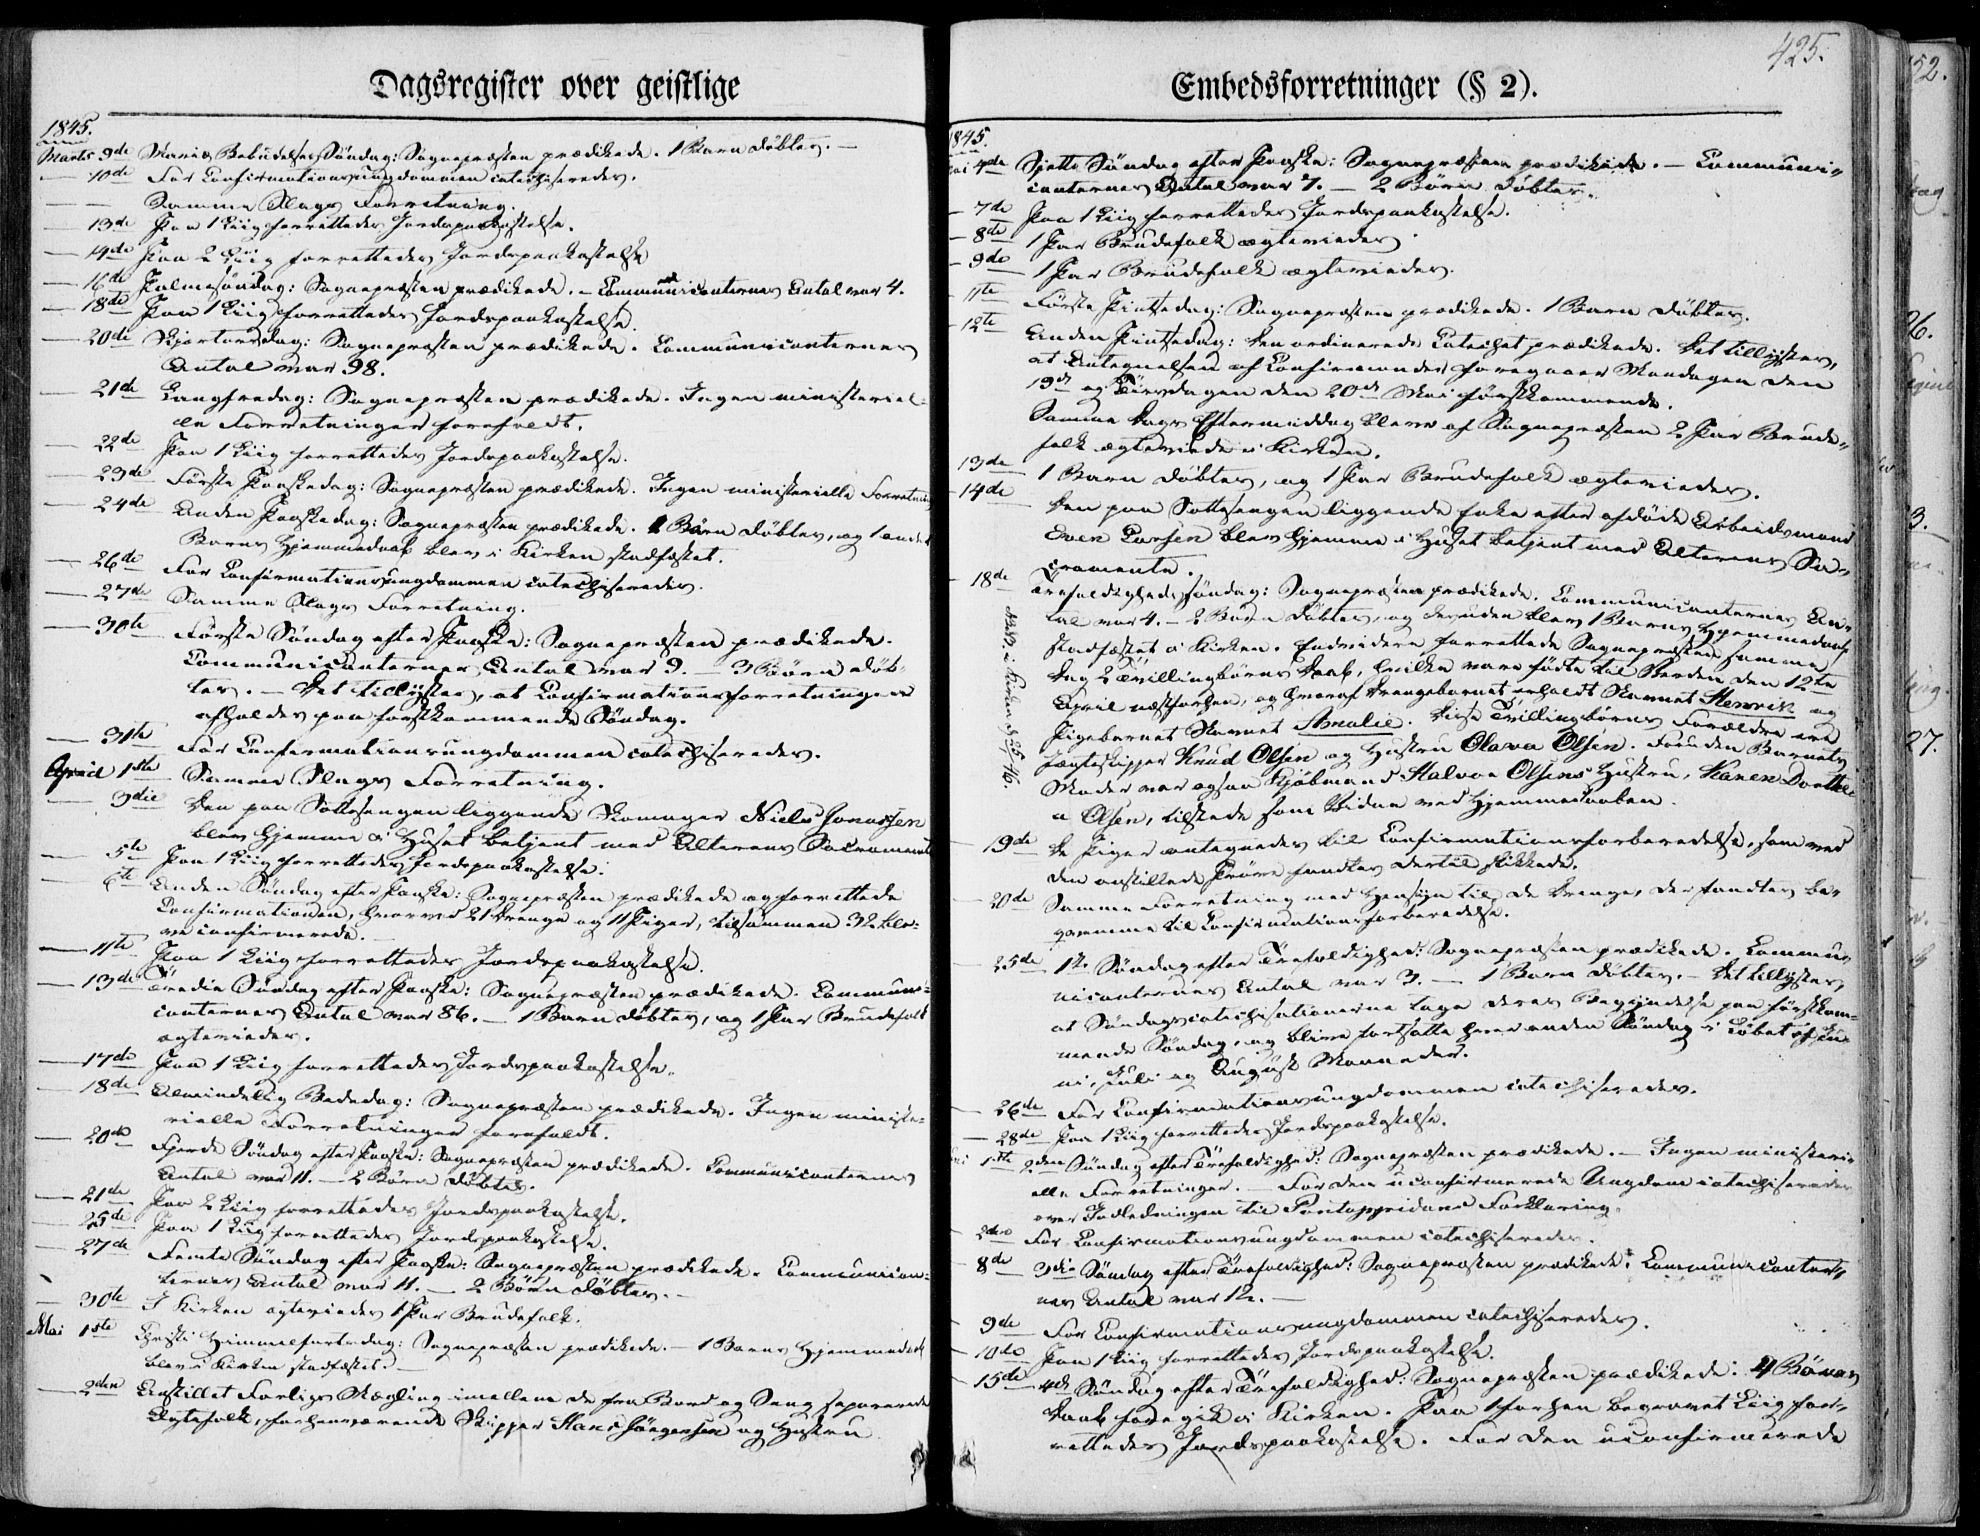 Dagsregister over geistlige
1845.
Marts 9de Mariæ Bebudelses Søndag: Sognepræsten prædikede. 1 Barn døbtes. —
— 10de For Confirmationsungdommen catechiseredes.
— — Samme Slags Forretning.
— 13de Paa 1 Liig forrettedes Jordspaakastelse.
— 14de Paa 2 Liig forrettedes Jordspaakastelse
— 16de Palmesøndag: Sognepræsten prædikede. — Communicanternes Antal var 4.
— 18de Paa 1 Liig forrettedes Jordspaakastelse.
— 20de Skjærtorsdag: Sognepræsten prædikede. Communicanternes
Antal var 98.
— 21de Langfredag: Sognepræsten prædikede. Ingen ministeriel-
le Forretninger forefaldt.
— 22de Paa 1 Liig forrettedes Jordspaakastelse.
— 23de Første Paaskedag: Sognepræsten prædikede. Ingen ministerielle Forretning
— 24de Anden Paaskedag: Sognepræsten prædikede. 2 Børn døbtes, og 1 andet
Barns Hjemmedaab blev i Kirken stadfæstet.
— 26de For Confirmationsungdommen catechiseredes.
— 27de Samme Slags Forretning.
— 30te Første Søndag efter Paaske: Sognepræsten prædikede.
Communicanternes Antal var 9. — 3 Børn døb-
tes. — Det tillystes, at Confirmationsforretningen
afholdes paa førstkommende Søndag.
— 31te For Confirmationsungdommen catechiseredes.
April 1ste Samme Slags Forretning.
— 3die Den paa Sottesengen liggende Skomager Niels Jonassen
blev hjemme i Huset betjent med Alterens Sacrament
— 5te Paa 1 Liig forrettedes Jordspaakastelse.
— 6te Anden Søndag efter Paaske: Sognepræsten prædikede og forrettede
Confirmationen, hvorved 21 Drenge og 11 Piger, tilsammen 32 ble-
ve confirmerede. —
— 11te Paa 1 Liig forrettedes Jordspaakastelse.
— 13de Tredie Søndag efter Paaske: Sognepræsten prædikede. Communi-
canternes Antal var 86. — 1 Barn døbtes, og 1 Par Brudefolk
ægteviedes.
— 17de Paa 1 Liig forrettedes Jordspaakastelse.
— 18de Almindelig Bededag: Sognepræsten prædikede. Ingen ministe-
rielle Forretninger forefaldt.
— 20de Fjerde Søndag efter Paaske: Sognepræsten prædikede. Communicanternes
Antal var 11. — 2 Børn døbtes.
— 21de Paa 2 Liig forrettedes Jordspaakastelse.
— 25de Paa 1 Liig forrettedes Jordspaakastelse.
— 27de Femte Søndag efter Paaske: Sognepræsten prædikede. Communican-
ternes Antal var 11. — 2 Børn døbtes. —
— 30te I Kirken ægteviedes 1 Par Brudefolk.
Mai 1ste Christi Himmelfartsdag: Sognepræsten prædikede. — 1 Barns Hjemmedaab
blev i Kirken stadfæstet. —
— 2den Anstillet Forligs Mægling imellem de fra Bord og Seng separerede
Ægtefolk, forhenværende Skipper Hans Jörgensen og Hustru
425.
Embedsforretninger (§ 2).
1845.
Mai 4de Sjette Søndag efter Paaske: Sognepræsten prædikede. — Communi-
canternes Antal var 7. — 2 Børn døbtes.
— 7de Paa 1 Liig forrettedes Jordspaakastelse.
— 8de 1 Par Brudefolk ægteviedes.
— 9de 1 Par Brudefolk ægteviedes.
— 11te Første Pintsedag: Sognepræsten prædikede. 1 Barn døbtes.
— 12te Anden Pintsedag: Den ordinerede Catechet prædikede. Det tillystes,
at Antegnelsen af Confirmander foregaaer Mandagen den
19de og Tirsdagen den 20de Mai førstkommende.
Samme Dags Eftermiddag bleve af Sognepræsten 2 Par Brude-
folk ægteviede i Kirken.
13de 1 Barn døbtes, og 1 Par Brudefolk ægteviedes.
— 14de Den paa Sottesengen liggende Enke efter afdøde Arbeidsmand
Even Larsen blev hjemme i Huset betjent med Alterens Sa-
cramente.
— 18de Trefoldigheds søndag: Sognepræsten prædikede. Communicanternes An-
tal var 4. — 2 Børn døbtes, og desuden blev 1 Barns Hjemmedaab
stadfæstet i Kirken. Endvidere forrettede Sognepræsten samme
Dag 2 Tvillingbørns Daab, hvilke vare fødte til Verden den 12te
April næstforhen, og hvoraf Drengebarnet erholdt Navnet Henrik og
Pigebarnet Navnet Amalie. Disse Tvillingbørns Forældre ere
Jægteskipper Knud Olsen og Hustru Olava Olsen. Foruden Barnets
Moder var ogsaa Kjøbmand Halvor Olsens Hustru, Karen Dorthe
a Olsen, tilstede som Vidne ved Hjemmedaaben.
— 19de De Piger antegnedes til Confirmationsforberedelse, som ved
den anstillede Prøve fandtes dertil skikkede.
— 20de Samme Forretning med Hensyn til de Drenge, der fandtes be-
qvemme til Confirmationsforberedelse.
— 25de 1ste Søndag efter Trefoldighed: Sognepræsten prædikede. Commu-
nicanternes Antal var 3. — 1 Barn døbtes. — Det tillystes,
at Søndagscatechisationerne tage deres Begyndelse paa førstkom-
mende Søndag, og blive fortsatte hver anden Søndag i Løbet af Ju-
ni, Juli og August Maaneder.
— 26de For Confirmationsungdommen catechiseredes.
— 28de Paa 1 Liig forrettedes Jordspaakastelse.
1ste 2den Søndag efter Trefoldighed: Sognepræsten prædikede. — Ingen ministeri-
elle Forretninger. — For den uconfirmerede Ungdom catechiseredes
over Indledningen til Pontoppidans Forklaring.
— 2den For Confirmationsungdommen catechiseredes.
— 8de 3die Søndag efter Trefoldighed: Sognepræsten prædikede. Communicanter-
nes Antal var 12. —
— 9de For Confirmationsungdommen catechiseredes.
— 10de Paa 1 Liig forrettedes Jordspaakastelse.
— 15de 4de Søndag efter Trefoldighed: Sognepræsten prædikede. 4 Børns
Daab foregik i Kirken. Paa 1 forhen begravet Liig for-
rettedes Jordspaakastelse. For den uconfirmerede
52.
26.
3.
27.